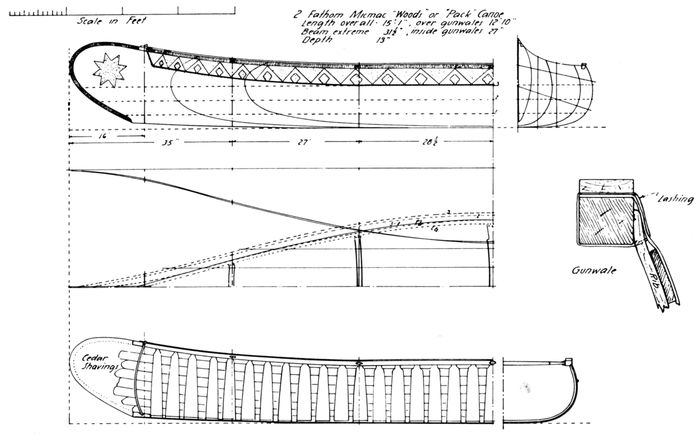 Scale in Feet
2 Fathom Micmac "Woods" or "Pack" Canoe
Length over all · 15'·1", over gunwales 12'·10"
Beam extreme 31½", inside gunwales 27"
Depth 13"
16
35"
27"
28½
Lashing
Rib
Gunwale
Cedar
Shavings